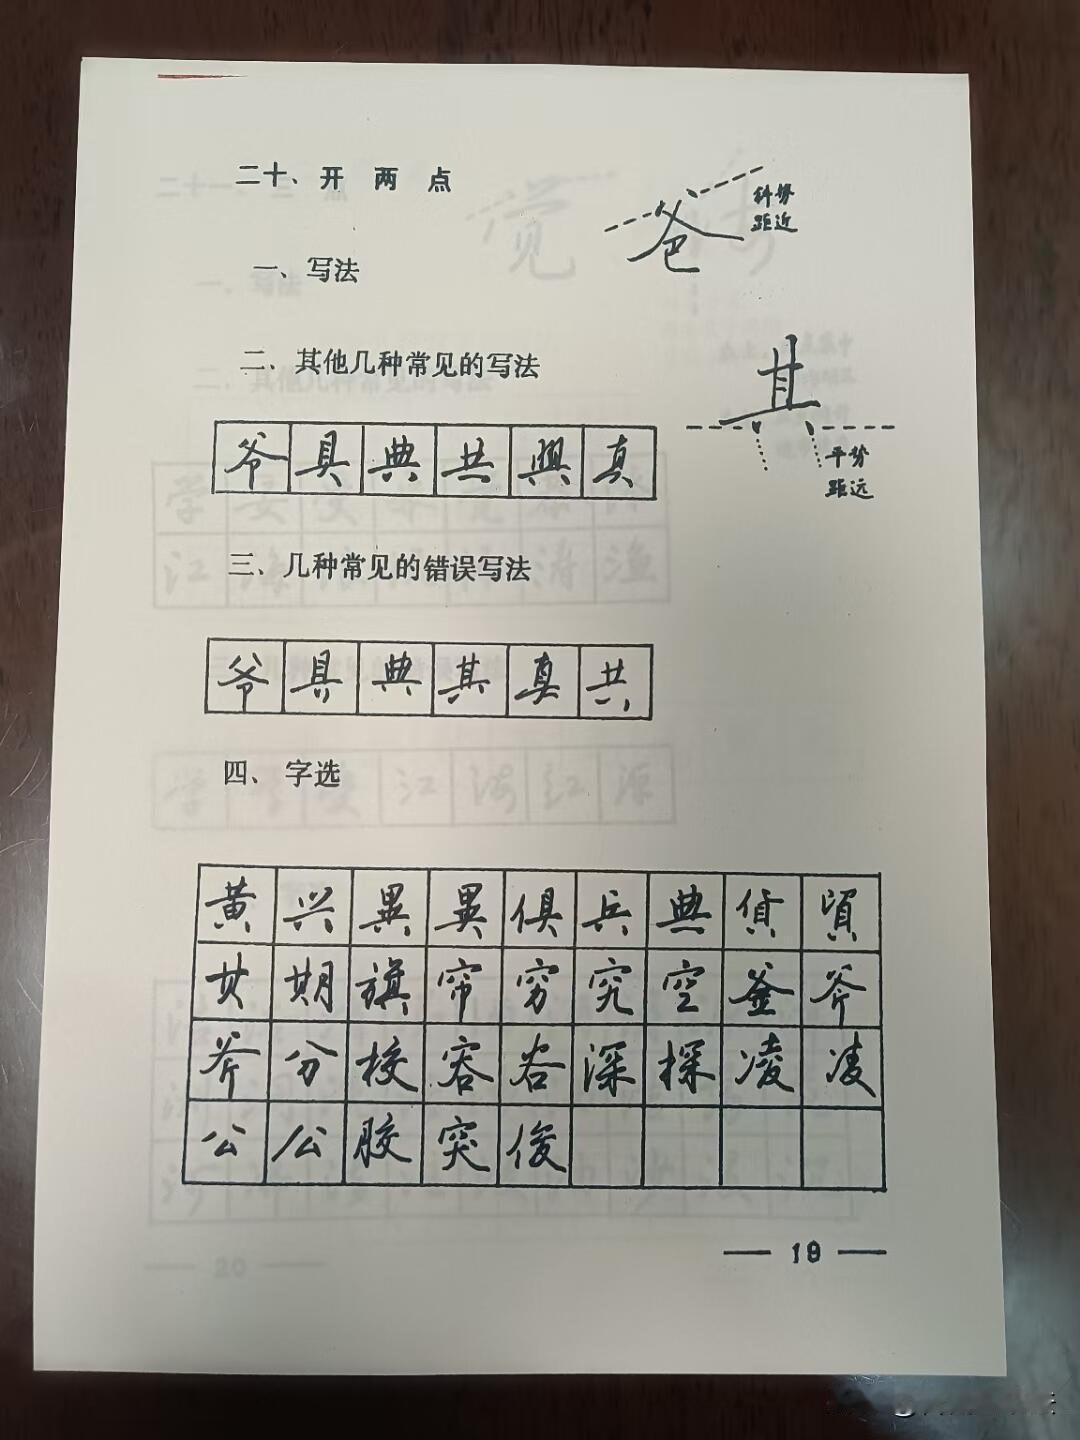 二十、开 两 点
爸
斜势
距近
一、写法
二、其他几种常见的写法
其
平势
距远
爷 具 典 共 興 真
三、几种常见的错误写法
爷 具 典 其 真 共
四、字选
黄 兴 異 異 俱 兵 典 貨
其 期 旗 帘 穷 究 空 釜 斧
斧 分 校 容 谷 深 探 凌 凌
公 公 胶 突 俊
— 19 —